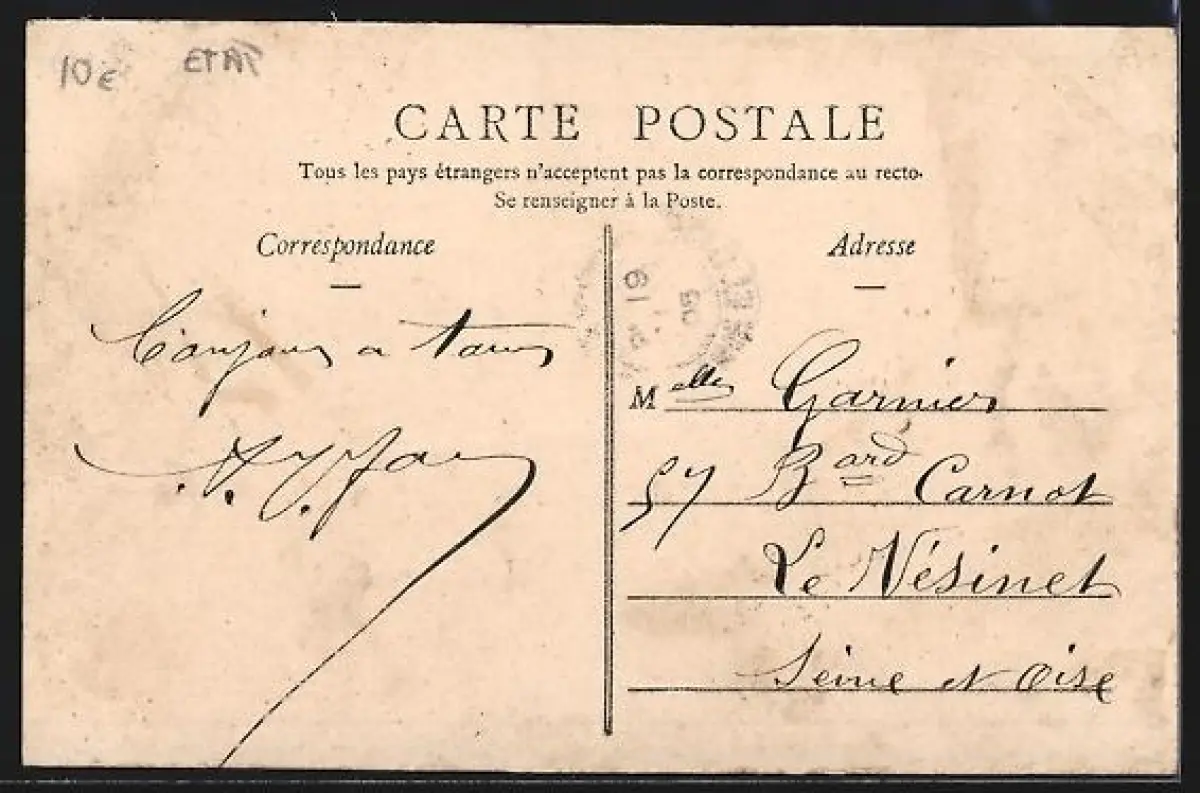 10€ ETAT
CARTE POSTALE
Tous les pays étrangers n'acceptent pas la correspondance au recto.
Se renseigner à la Poste.
Correspondance
Bonjour a tous
Adresse
Melles Garnier
57 Bard Carnot
Le Vésinet
Seine et Oise